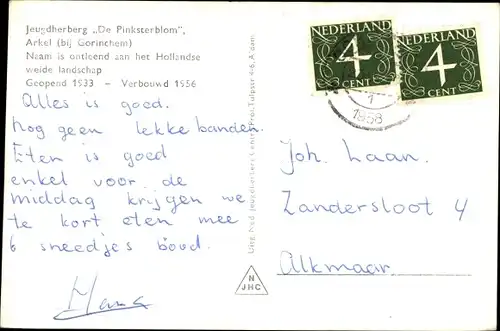 Jeugdherberg „De Pinksterblom",
Arkel (bij Gorinchem)
Naam is ontleend aan het Hollandse
weide landschap
Geopend 1933 – Verbouwd 1956
Alles is goed.
Nog geen lekke banden.
Eten is goed
enkel voor de
middag krijgen we
te kort eten mee
6 sneedjes bôud.
Hans
Uitg. Ned. Jeugdherberg Centrale, Prof. Tulpstr. 4-6, A'dam.
N
JHC
NEDERLAND
4
CENT
NEDERLAND
4
CENT
1
1958
Joh. Laan.
Zandersloot 4
Alkmaar.